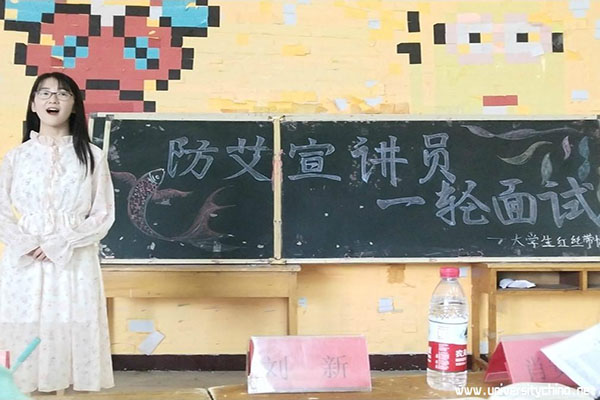 防艾宣讲员
一轮面试
—大学生红丝带
刘 新
www.universitychina.net